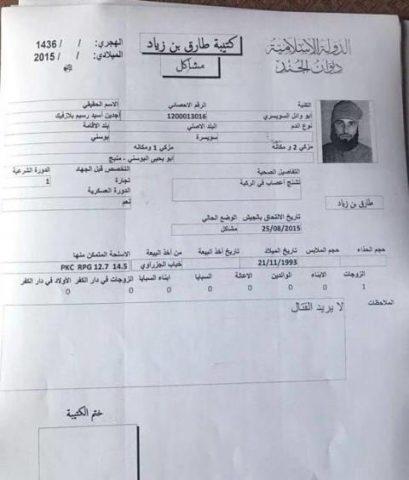 الدولة الإسلامية
ديوان الجند
كتيبة طارق بن زياد
مشاكل
الهجري: / / 1436
الميلادي: / / 2015
الكنية
الرقم الاحصائي
الاسم الحقيقي
ابو وائل السويسري
1200013016
نوع الدم
البلد الاصلي
بلد الاقامة
سويسرة
بوسني
مزكي 2 و مكانه
مزكي 1 ومكانه
ابو يحيى البوسني - منبج
التفاصيل الصحية
التخصص قبل الجهاد
الدورة الشرعية
تشنج اعصاب في الركبة
نجارة
1
الدورة العسكرية
نعم
طارق بن زياد
تاريخ الالتحاق بالجيش
الوضع الحالي
25/08/2015
مشاكل
حجم الحذاء
حجم الملابس
تاريخ الميلاد
تاريخ البيعة
من أخذ البيعة
الاسلحة المتمكن منها
21/11/1993
خباب الجزراوي
PKC RPG 12.7 14.5
الزوجات
الابناء
الوالدين
الاعالة
السبايا
ابناء السبايا
الزوجات في دار الكفر
الأولاد في دار الكفر
1 0 0 0 0 0 0 0
الملاحظات
لا يريد القتال
ختم الكتيبة